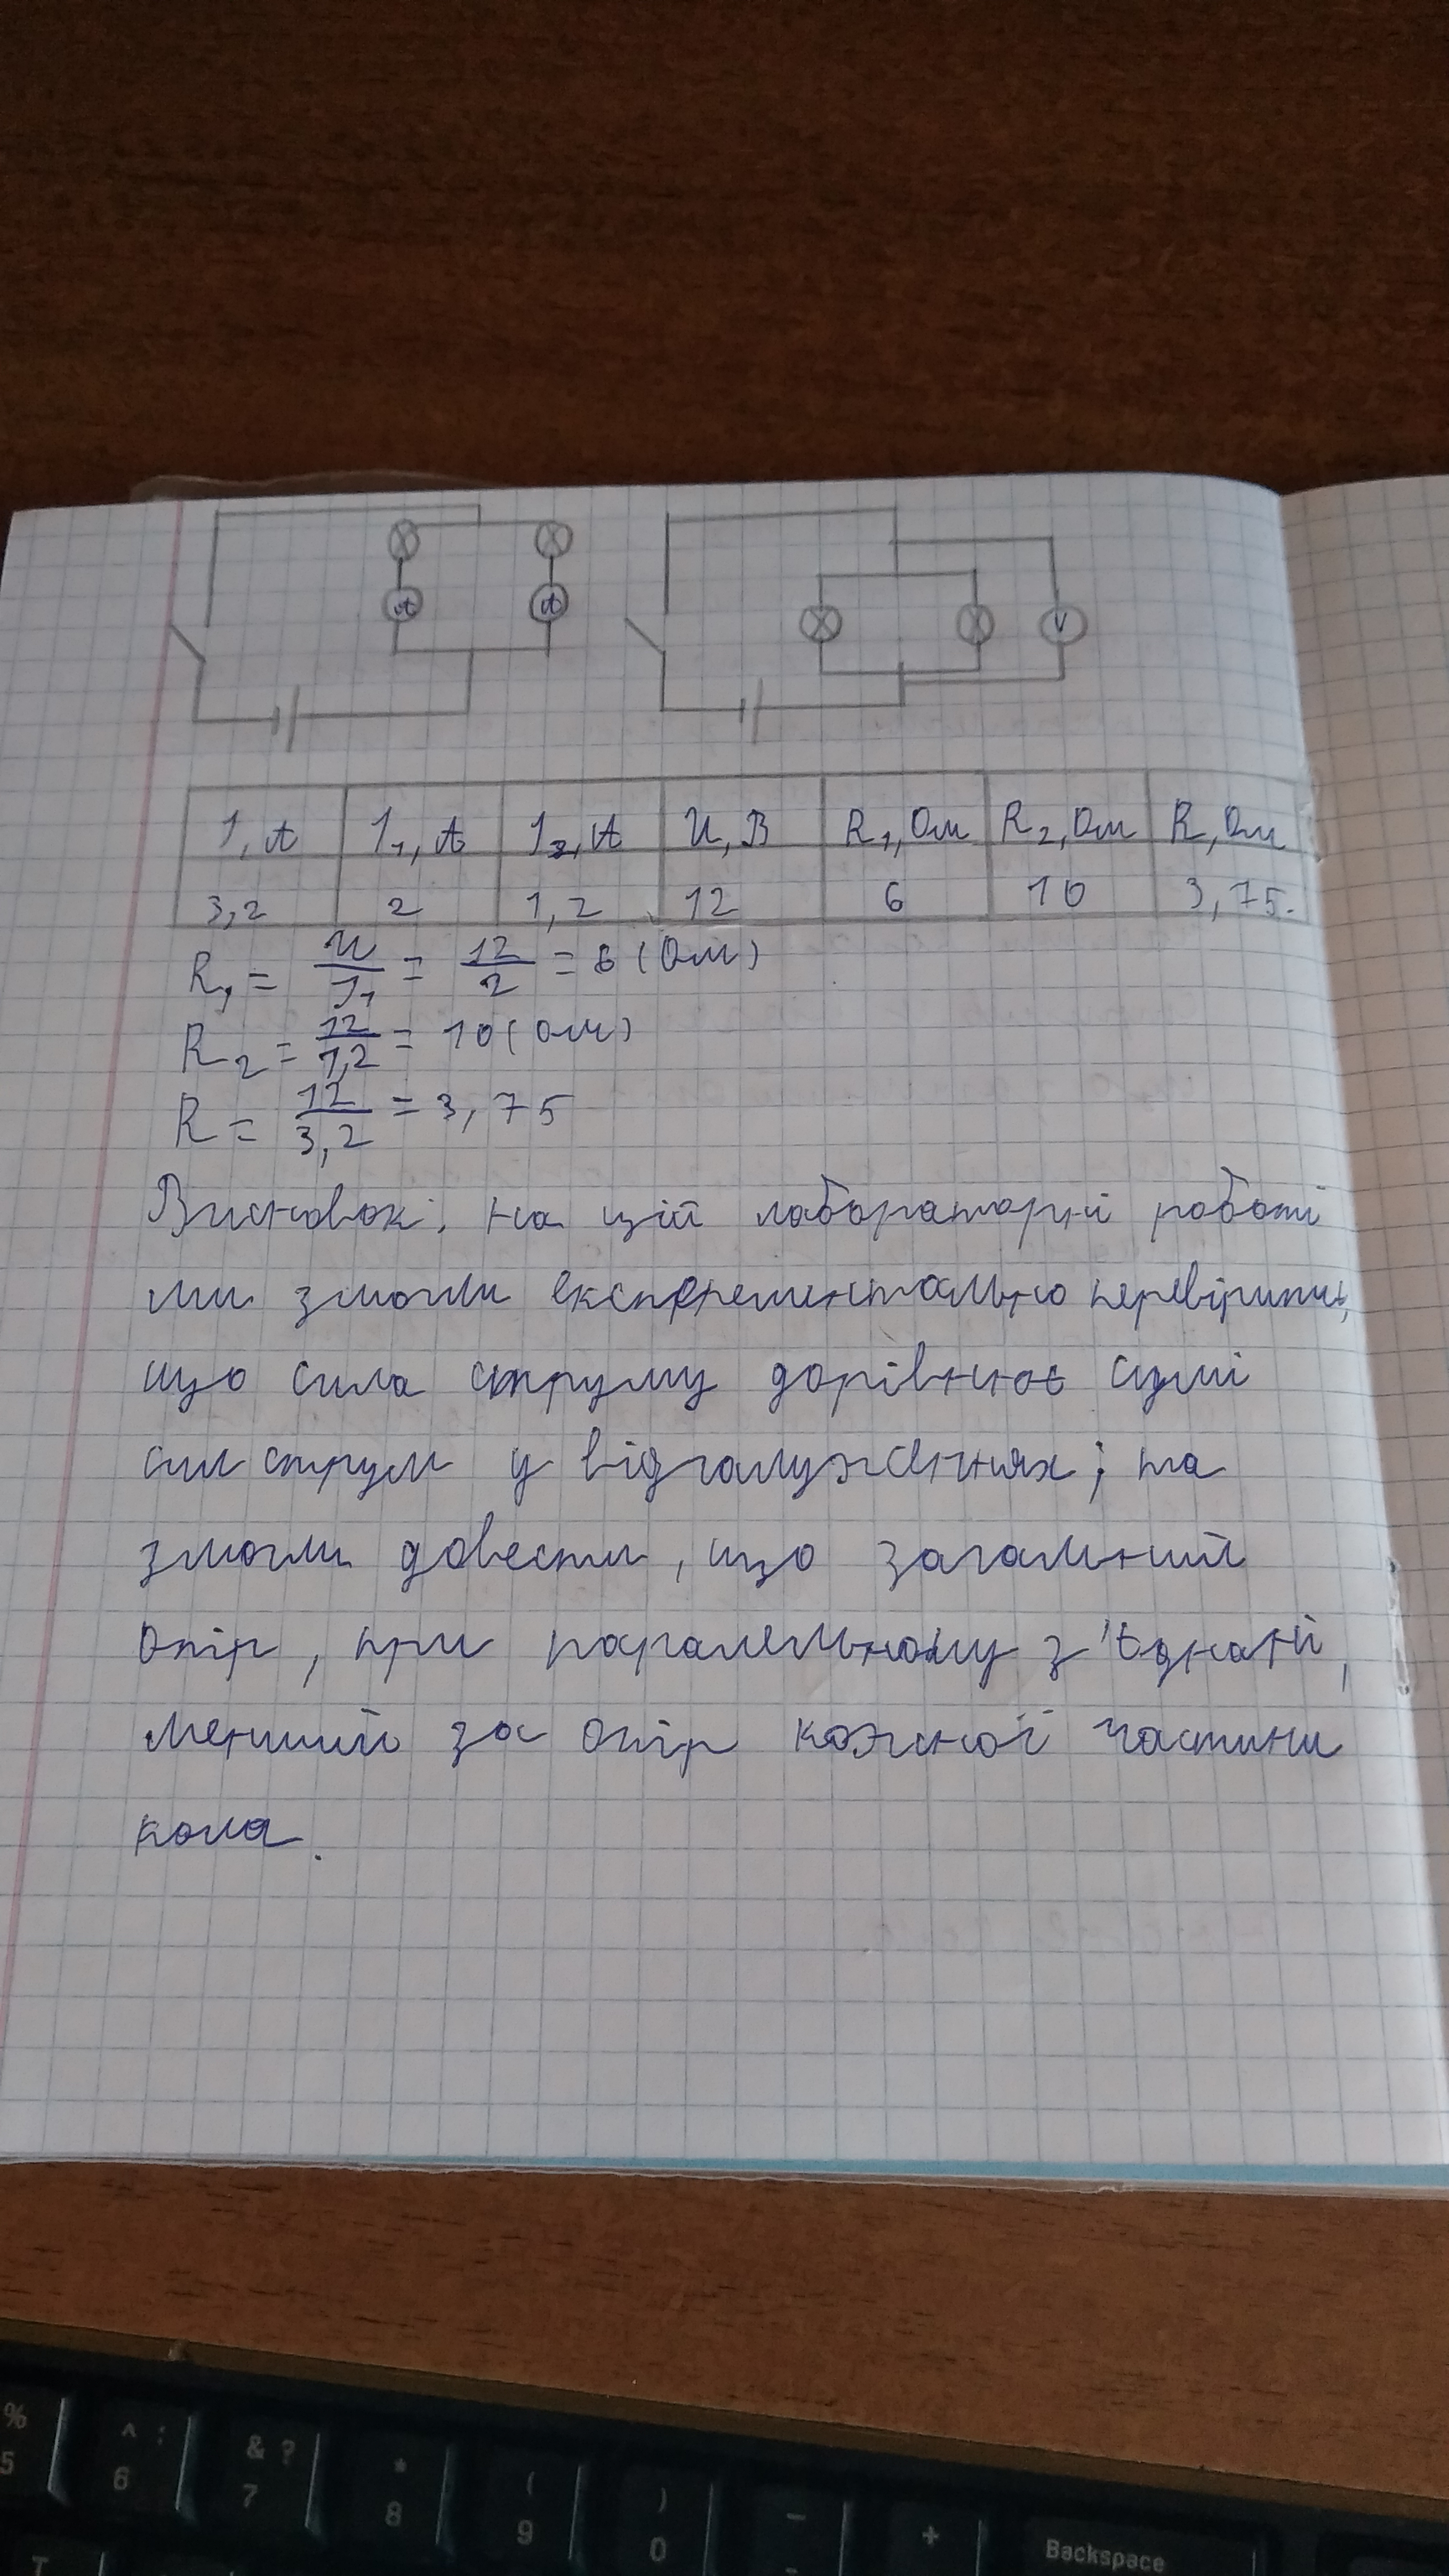 A A V
I, A I₁, A I₂, A U, В R₁, Ом R₂, Ом R, Ом
3,2 2 1,2 12 6 10 3,75.
R₁ = U/I₁ = 12/2 = 6 (Ом)
R₂ = 12/1,2 = 10 (Ом)
R = 12/3,2 = 3,75
Висновок: на цій лабораторній роботі
ми змогли експерементально перевірити,
що сила струму дорівнює сумі
сил струм у відгалуженнях; та
змогли довести, що загальний
опір, при паралельному з'єднані,
менший за опір кожної частини
кола.
% 5
^ : 6
& ? 7
* 8
( 9
) 0
_ -
+
Backspace
T